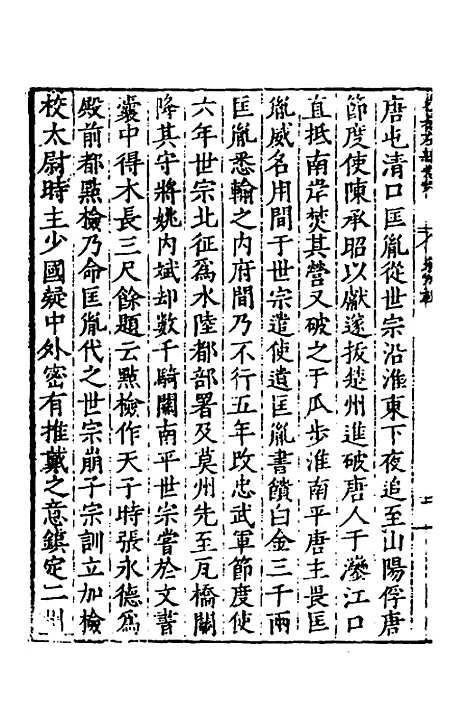 唐屯清口匡胤從世宗沿淮東下夜追至山陽俘唐
節度使陳承昭以獻遂拔楚州進破唐人于瀊江口
直抵南岸焚其營又破之于瓜步淮南平唐主畏匡
胤威名用間于世宗遣使遺匡胤書饋白金三千兩
匡胤悉輸之内府間乃不行五年改忠武軍節度使
六年世宗北征爲水陸都部署及莫州先至瓦橋關
降其守將姚内斌却數千騎關南平世宗嘗於文書
囊中得木長三尺餘題云㸃檢作天子時張永德爲
殿前都㸃檢乃命匡胤代之世宗崩子宗訓立加檢
校太尉時主少國疑中外密有推戴之意鎮定二州